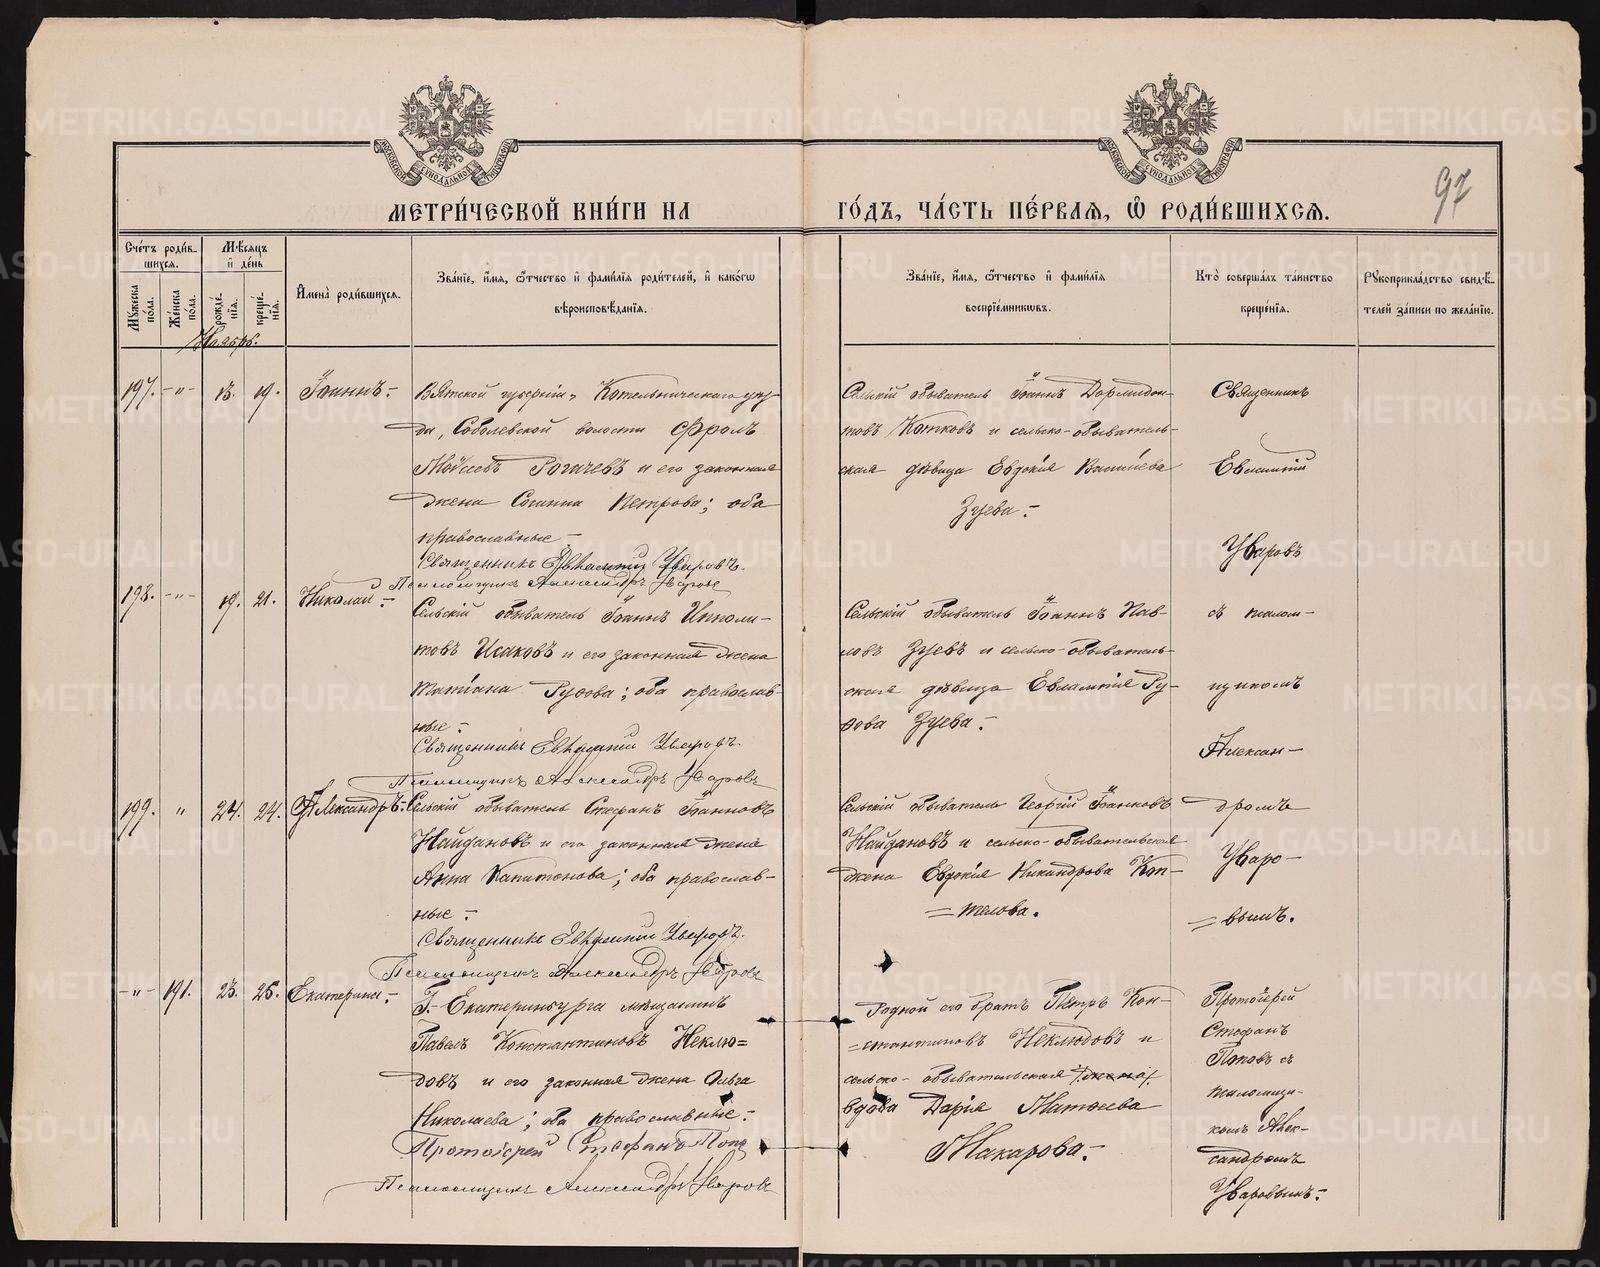 МЕТРИ́ЧЕСКОЙ КНИ́ГИ НА ГО́ДЪ, ЧА́СТЬ ПЕ́РВАЯ, Ѡ҆ РОДИ́ВШИХСЯ.
97
Сче́тъ роди́в-
шихся.
Мꙋ́жеска по́ла.
Же́нска по́ла.
Мѣ́сяцъ и҆ де́нь
рожде́нїя.
креще́нїя.
И҆мена̀ роди́вшихся.
Зва́нїе, и҆́мя, ѻ҆́тчество и҆ фами́лїя роди́телей, и҆ како́гѡ
вѣроисповѣ́данїя.
Зва́нїе, и҆́мя, ѻ҆́тчество и҆ фами́лїя
воспрїе́мникѡвъ.
Кто̀ соверша́лъ та́инство
креще́нїя.
Рꙋкоприкла́дство свидѣ́-
телей за́писи по жела́нїю.
Ноябрь.
197. -"- 13. 19. Іоаннъ.-
Вятской губерніи, Котельническаго уѣз
да, Соболевской волости Фролъ
Моѵсеевъ Рогачевъ и его законная
жена Сосанна Петрова; оба
православные.-
Священникъ Евлампій Уваровъ.
Псаломщикъ Александръ Уваровъ
Сельскій обыватель Іоаннъ Дормидон-
товъ Котковъ и сельско-обыватель-
ская дѣвица Евдокія Васильева
Зуева.-
Священникъ
Евлампій
Уваровъ
198. -"- 19. 21. Николай.-
Сельскій обыватель Іоаннъ Ипполи-
товъ Исаковъ и его законная жена
Татіана Руфова; оба православ-
ные.-
Священникъ Евлампій Уваровъ.
Псаломщикъ Александръ Уваровъ
Сельскій обыватель Іоаннъ Пав-
ловъ Зуевъ и сельско-обыватель-
ская дѣвица Евлампія Ру-
фова Зуева.-
съ псалом-
щикомъ
Алексан-
199. " 24. 24. Александръ.-
Сельскій обыватель Стефанъ Іоанновъ
Найдановъ и его законная жена
Анна Капитонова; оба православ-
ные.-
Священникъ Евлампій Уваровъ.
Псаломщикъ Александръ Уваровъ
Сельскій обыватель Георгій Іоанновъ
Найдановъ и сельско-обывательская
жена Евдокія Никандрова Коп-
=телова.
дромъ
Уваро-
=вымъ.
-"- 191. 23. 25. Екатерина.-
Г. Екатеринбурга мѣщанинъ
Павелъ Константиновъ Неклю=
довъ и его законная жена Ольга
Николаева; оба православные.-
Протоіерей Стефанъ Поповъ
Псаломщикъ Александръ Уваровъ
Родной его братъ Петръ Кон-
=стантиновъ Неклюдовъ и
сельско-обывательская /жена/
вдова Дарія Матѳеева
Макарова.-
Протоіерей
Стефанъ
Поповъ съ
псаломщи-
комъ Алек-
сандромъ
Уваровымъ.-